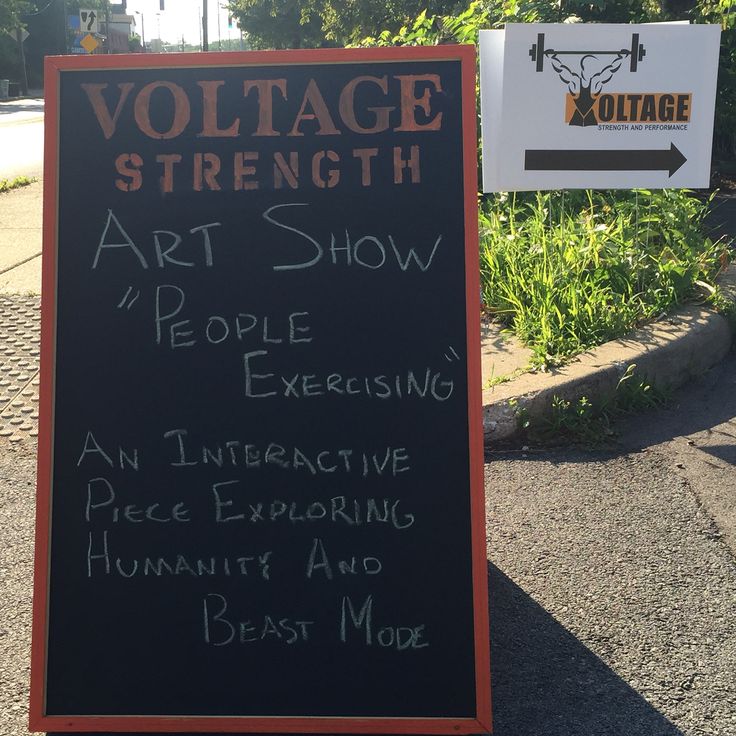 VOLTAGE
STRENGTH
ART SHOW
"PEOPLE
EXERCISING"
AN INTERACTIVE
PIECE EXPLORING
HUMANITY AND
BEAST MODE
VOLTAGE
STRENGTH AND PERFORMANCE